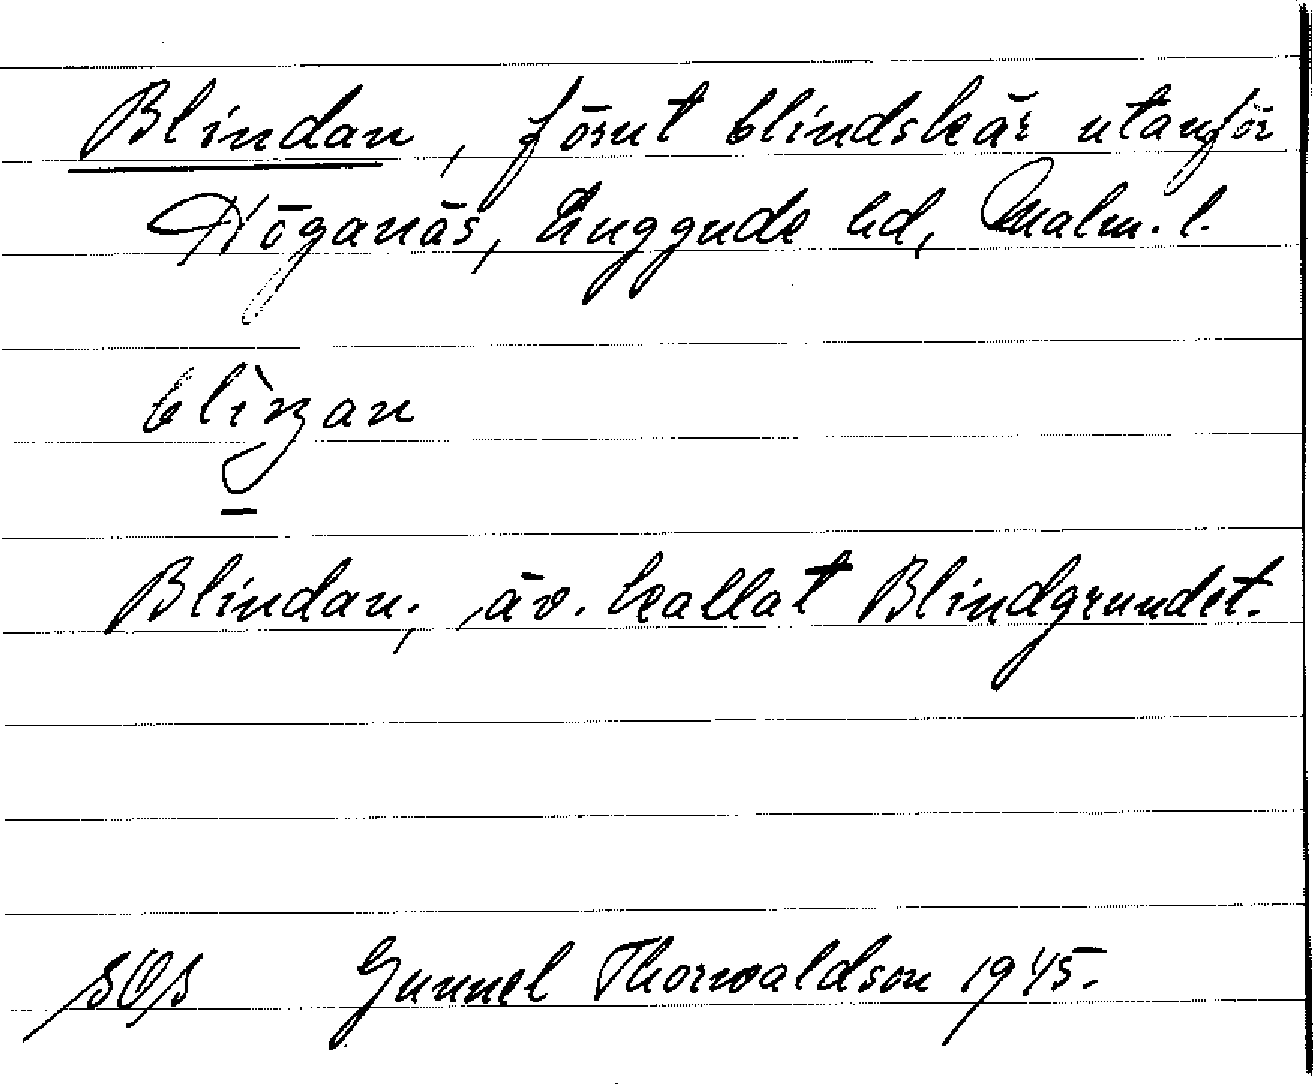 Blindan, förut blindskär utanför
Höganäs, Luggude hd, Malm. l.
Blindan, äv. kallat Blindgrundet.
SOS Gunnel Thorwaldson 1945.